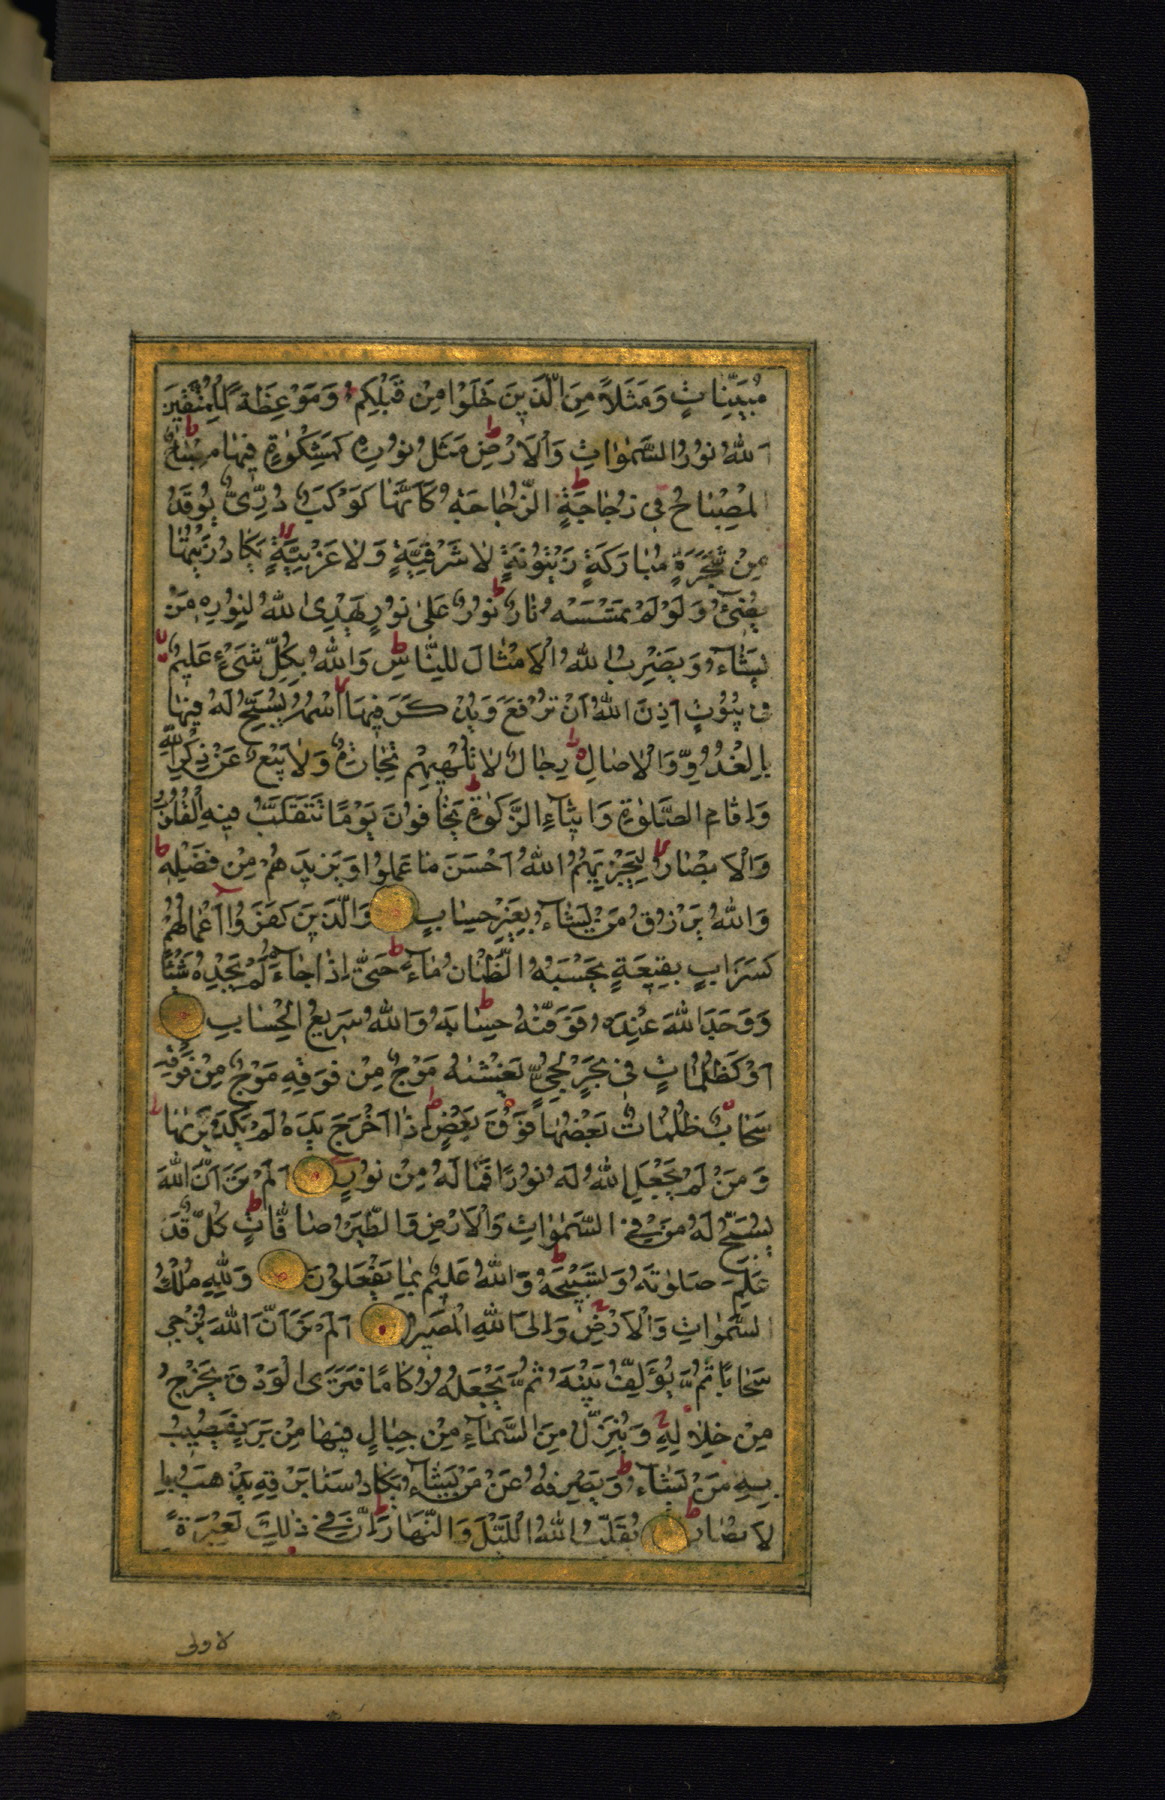 مُبَيِّنَاتٍ وَمَثَلاً مِنَ الَّذِينَ خَلَوْا مِنْ قَبْلِكُمْ وَمَوْعِظَةً لِلْمُتَّقِينَ
اَللهُ نُورُ السَّمٰوَاتِ وَالْاَرْضِ ط مَثَلُ نُورِهِ كَمِشْكٰوةٍ فِيهَا مِصْبَاحٌ ط
اَلْمِصْبَاحُ فِي زُجَاجَةٍ ط اَلزُّجَاجَةُ كَاَنَّهَا كَوْكَبٌ دُرِّيٌّ يُوقَدُ
مِنْ شَجَرَةٍ مُبَارَكَةٍ زَيْتُونَةٍ لَا شَرْقِيَّةٍ وَلَا غَرْبِيَّةٍ لا يَكَادُ زَيْتُهَا
يُضِيءُ وَلَوْ لَمْ تَمْسَسْهُ نَارٌ ط نُورٌ عَلٰى نُورٍ يَهْدِي اللهُ لِنُورِهِ مَنْ
يَشَاءُ وَيَضْرِبُ اللهُ الْاَمْثَالَ لِلنَّاسِ ط وَاللهُ بِكُلِّ شَيْءٍ عَلِيمٌ لا
فِي بُيُوتٍ اَذِنَ اللهُ اَنْ تُرْفَعَ وَيُذْكَرَ فِيهَا اسْمُهُ لا يُسَبِّحُ لَهُ فِيهَا
بِالْغُدُوِّ وَالْاٰصَالِ ط رِجَالٌ لَا تُلْهِيهِمْ تِجَارَةٌ وَلَا بَيْعٌ عَنْ ذِكْرِ اللهِ
وَاِقَامِ الصَّلٰوةِ وَاِيتَاءِ الزَّكٰوةِ ط يَخَافُونَ يَوْمًا تَتَقَلَّبُ فِيهِ الْقُلُوبُ
وَالْاَبْصَارُ لا لِيَجْزِيَهُمُ اللهُ اَحْسَنَ مَا عَمِلُوا وَيَزِيدَهُمْ مِنْ فَضْلِهِ ط
وَاللهُ يَرْزُقُ مَنْ يَشَاءُ بِغَيْرِ حِسَابٍ وَالَّذِينَ كَفَرُوا اَعْمَالُهُمْ
كَسَرَابٍ بِقِيعَةٍ يَحْسَبُهُ الظَّمْاٰنُ مَاءً ط حَتّٰى اِذَا جَاءَهُ لَمْ يَجِدْهُ شَيْئًا
وَوَجَدَ اللهَ عِنْدَهُ فَوَفّٰيهُ حِسَابَهُ ط وَاللهُ سَرِيعُ الْحِسَابِ
اَوْ كَظُلُمَاتٍ فِي بَحْرٍ لُجِّيٍّ يَغْشٰيهُ مَوْجٌ مِنْ فَوْقِهِ مَوْجٌ مِنْ فَوْقِهِ
سَحَابٌ ظُلُمَاتٌ بَعْضُهَا فَوْقَ بَعْضٍ ط اِذَا اَخْرَجَ يَدَهُ لَمْ يَكَدْ يَرٰيهَا ط
وَمَنْ لَمْ يَجْعَلِ اللهُ لَهُ نُورًا فَمَا لَهُ مِنْ نُورٍ اَلَمْ تَرَ اَنَّ اللهَ
يُسَبِّحُ لَهُ مَنْ فِي السَّمٰوَاتِ وَالْاَرْضِ وَالطَّيْرُ صَافَّاتٍ ط كُلٌّ قَدْ
عَلِمَ صَلٰوتَهُ وَتَسْبِيحَهُ ط وَاللهُ عَلِيمٌ بِمَا يَفْعَلُونَ وَلِلّٰهِ مُلْكُ
السَّمٰوَاتِ وَالْاَرْضِ وَاِلَى اللهِ الْمَصِيرُ اَلَمْ تَرَ اَنَّ اللهَ يُزْجِي
سَحَابًا ثُمَّ يُؤَلِّفُ بَيْنَهُ ثُمَّ يَجْعَلُهُ رُكَامًا فَتَرَى الْوَدْقَ يَخْرُجُ
مِنْ خِلَالِهِ وَيُنَزِّلُ مِنَ السَّمَاءِ مِنْ جِبَالٍ فِيهَا مِنْ بَرَدٍ فَيُصِيبُ
بِهِ مَنْ يَشَاءُ وَيَصْرِفُهُ عَنْ مَنْ يَشَاءُ ط يَكَادُ سَنَا بَرْقِهِ يَذْهَبُ بِا
لْاَبْصَارِ ط يُقَلِّبُ اللهُ اللَّيْلَ وَالنَّهَارَ ط اِنَّ فِي ذٰلِكَ لَعِبْرَةً
لاولى